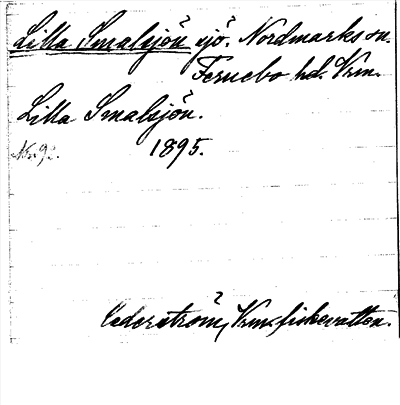 Lilla Smalsjön sjö. Nordmarks sn.
Fernebo hd. Vrm.
Lilla Smalsjön.
1895.
Cederström, Vrms fiskevatten.